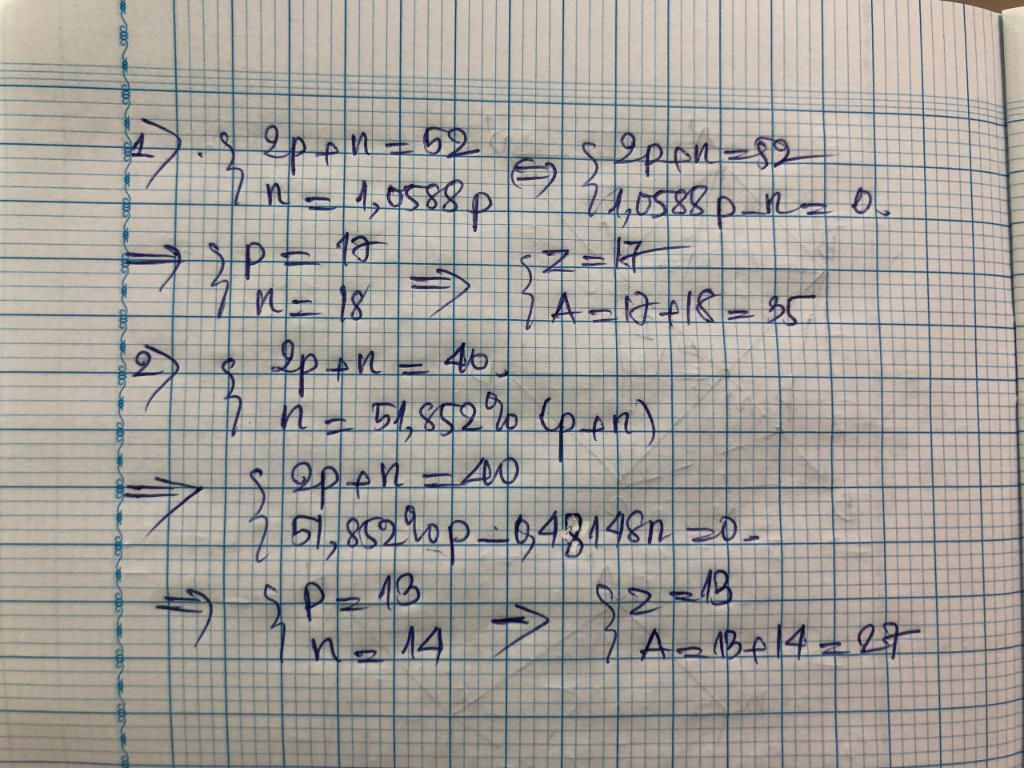 1) . { 2p+n = 52 ⇔ { 2p+n = 52
n = 1,0588p 1,0588p - n = 0.
⇒ { p = 17 ⇒ { Z = 17
n = 18 A = 17+18 = 35
2) { 2p+n = 40.
n = 51,852% (p+n)
⇒ { 2p+n = 40
51,852%p - 0,48148n = 0.
⇒ { p = 13 → { Z = 13
n = 14 A = 13+14 = 27